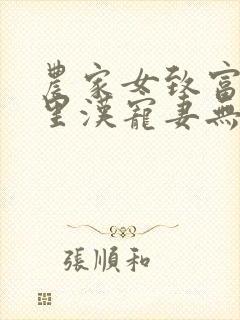 農家女致富
里漢寵妻無
張順和